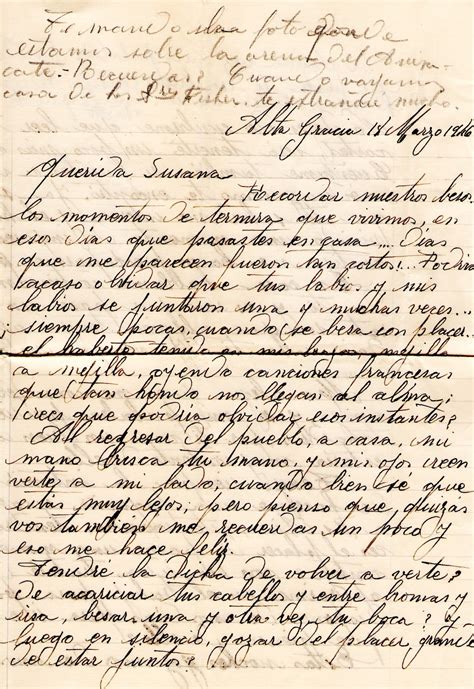 Te mando una foto donde
estamos sobre la arena del Anisa-
cate.- Recuerdas? Cuando vayamos
casa de los Sres Fisher. te extrañé mucho.
Alta Gracia 18 Marzo 1946
Querida Susana
Recordar nuestros besos
los momentos de ternura que vivimos, en
esos dias que pasastes en casa.... Dias
que me parecen fueron tan cortos!... Podria
acaso olvidar que tus labios y mis
labios se juntaron una y muchas veces...
siempre pocas, cuando se besa con placer...
el haberte tenido en mis brazos, mejilla
a mejilla, oyendo canciones francesas
que tan hondo nos llegan al alma;
crees que podria olvidar esos instantes?
Al regresar del pueblo, a casa, mi
mano busca tu mano, y mis ojos creen
verte a mi lado, cuando bien se que
estás muy lejos; pero pienso que quizás
vos tambien me recuerdas un poco y
eso me hace feliz.
Tendré la dicha de volver a verte?
de acariciar tus cabellos y entre bromas y
risa, besar una y otra vez tu boca? y
luego en silencio, gozar del placer, grande
de estar juntos?